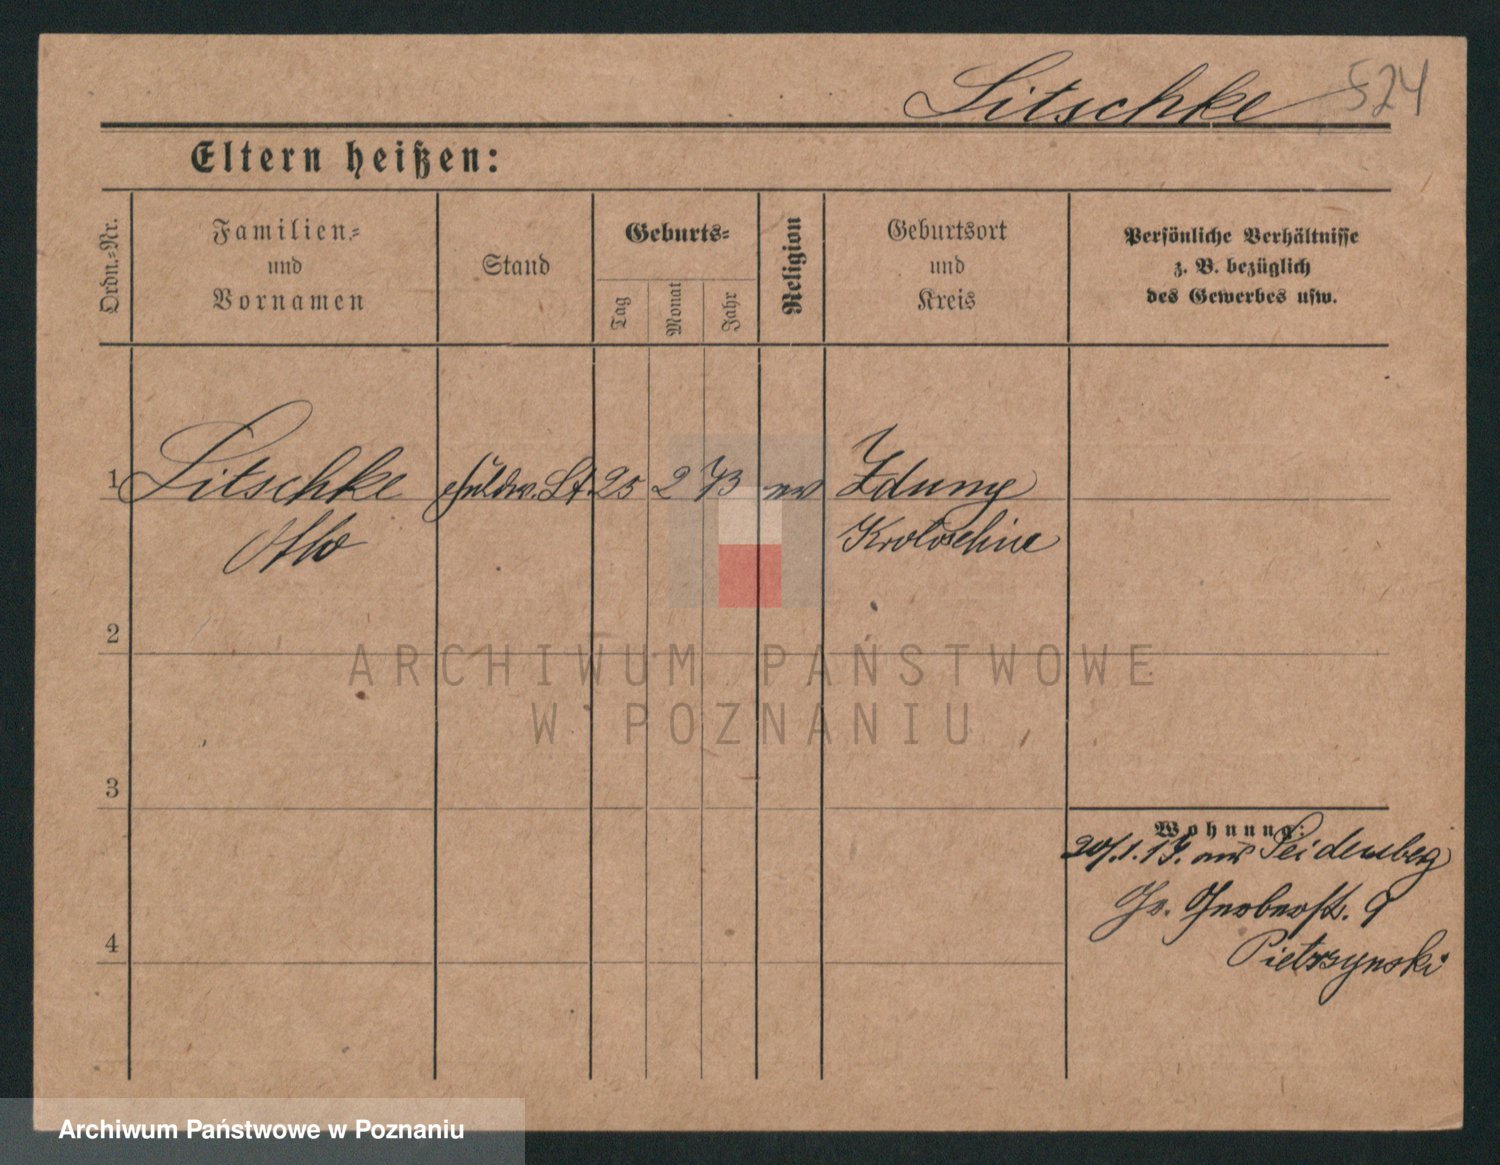 Litschke 524
Eltern heißen:
Ordn.-Nr.
Familien-
und
Vornamen
Stand
Geburts-
Tag
Monat
Jahr
Religion
Geburtsort
und
Kreis
Persönliche Verhältnisse
z. B. bezüglich
des Gewerbes usw.
1 Litschke 25 2 73 ev Zduny
Otto Krotoschin
2
3
4
ARCHIWUM PAŃSTWOWE
W POZNANIU
Wohnung:
20/.1.17. aus Seidenberg
Gr. Gerberstr. 9
Pietrzynski
Archiwum Państwowe w Poznaniu